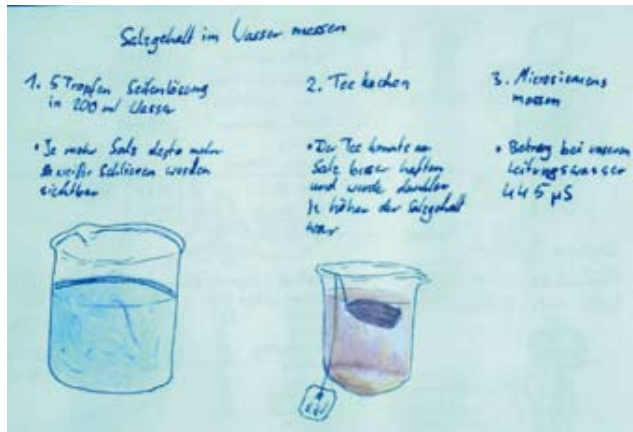 Salzgehalt im Wasser messen
1. 5 Tropfen Seifenlösung
in 200 ml Wasser
• Je mehr Salz desto mehr
weiße Schlieren werden
sichtbar
2. Tee kochen
• Der Tee konnte am
Salz besser haften
und wurde dunkler
je höher der Salzgehalt
war
3. Microsiemens
messen
• Betrag bei unserem
Leitungswasser
445 µS